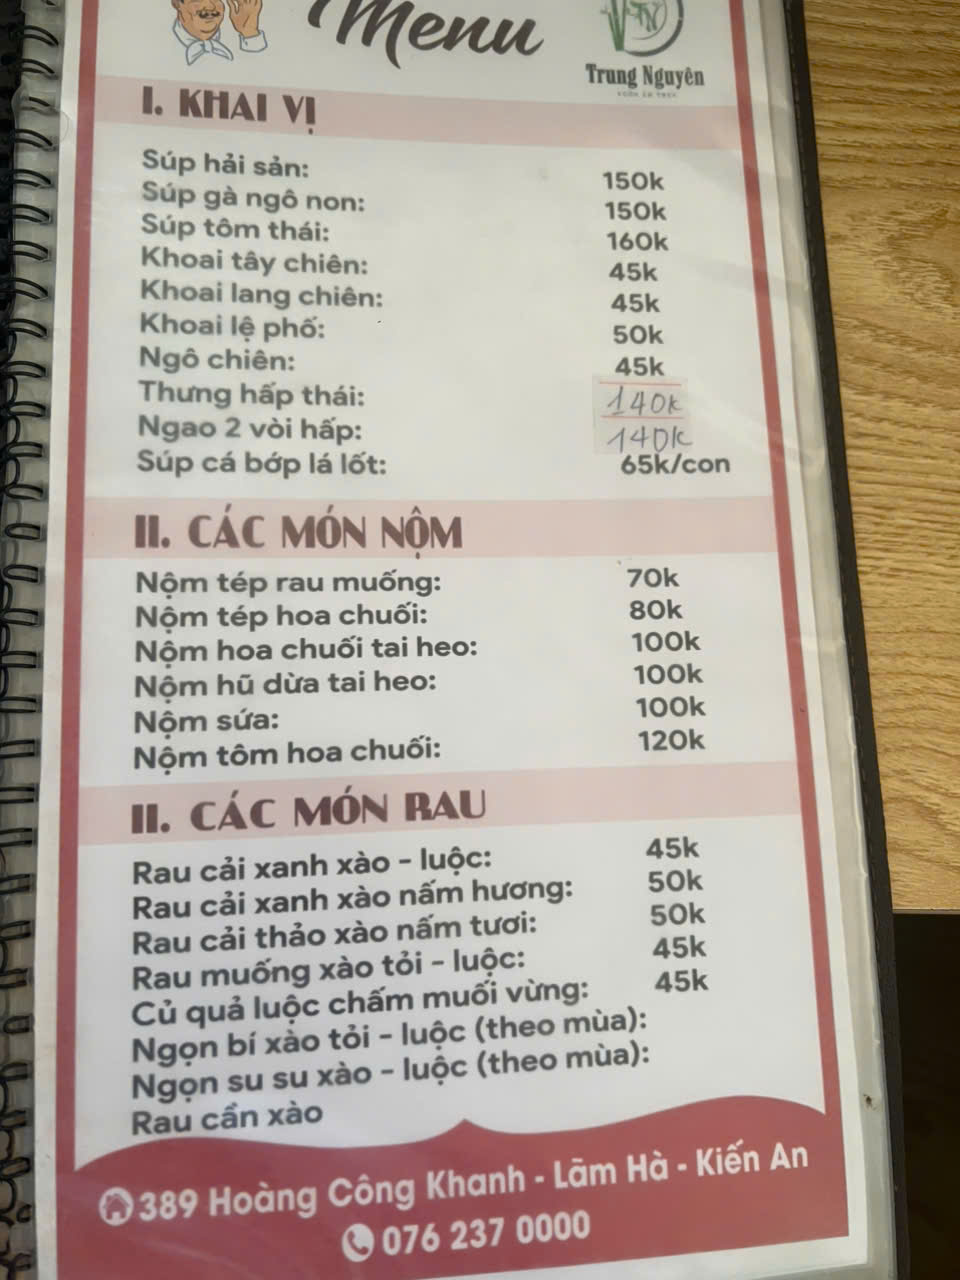 Menu
Trung Nguyên
I. KHAI VỊ
Súp hải sản: 150k
Súp gà ngô non: 150k
Súp tôm thái: 160k
Khoai tây chiên: 45k
Khoai lang chiên: 45k
Khoai lệ phố: 50k
Ngô chiên: 45k
Thưng hấp thái: 140k
Ngao 2 vòi hấp: 140k
Súp cá bớp lá lốt: 65k/con
II. CÁC MÓN NỘM
Nộm tép rau muống: 70k
Nộm tép hoa chuối: 80k
Nộm hoa chuối tai heo: 100k
Nộm hũ dừa tai heo: 100k
Nộm sứa: 100k
Nộm tôm hoa chuối: 120k
II. CÁC MÓN RAU
Rau cải xanh xào - luộc: 45k
Rau cải xanh xào nấm hương: 50k
Rau cải thảo xào nấm tươi: 50k
Rau muống xào tỏi - luộc: 45k
Củ quả luộc chấm muối vừng: 45k
Ngọn bí xào tỏi - luộc (theo mùa):
Ngọn su su xào - luộc (theo mùa):
Rau cần xào
389 Hoàng Công Khanh - Lãm Hà - Kiến An
076 237 0000